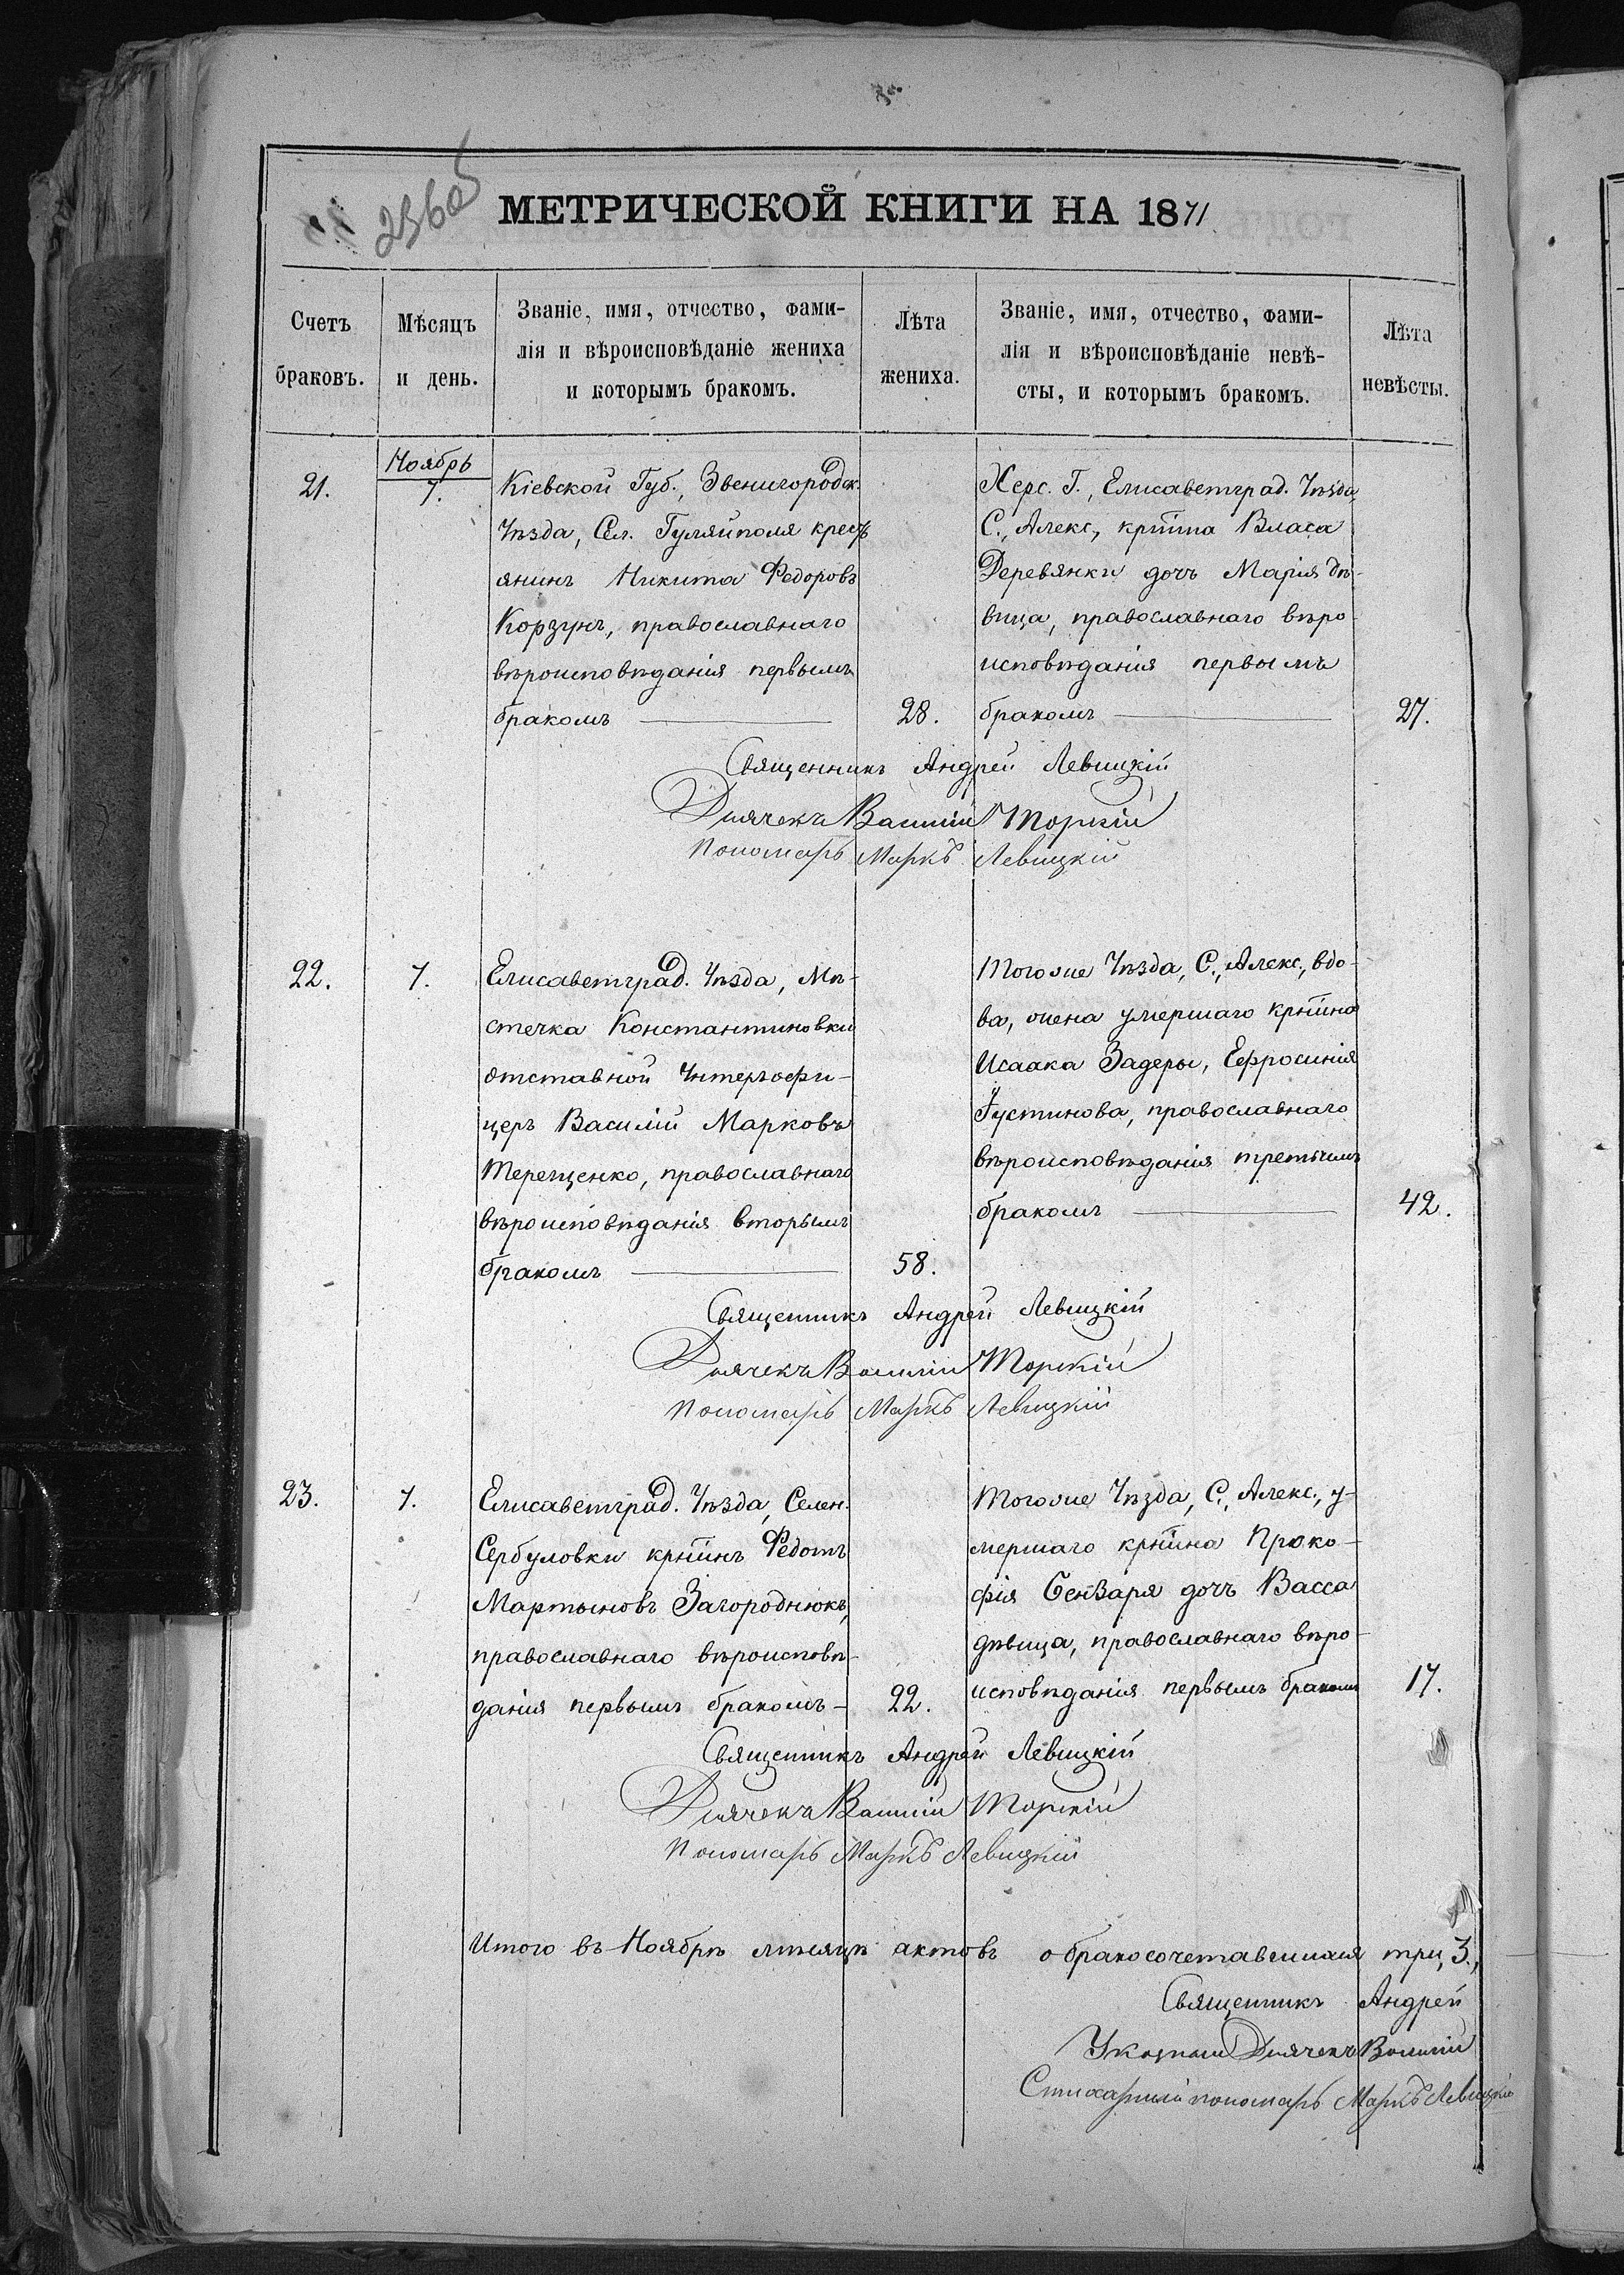 2360б
МЕТРИЧЕСКОЙ КНИГИ НА 1871
Счетъ браковъ.
Мѣсяцъ и день.
Званіе, имя, отчество, фами-
лія и вѣроисповѣданіе жениха
и которымъ бракомъ.
Лѣта жениха.
Званіе, имя, отчество, фами-
лія и вѣроисповѣданіе невѣ-
сты, и которымъ бракомъ.
Лѣта невѣсты.
21.
Ноябрь
7.
Кіевской Губ., Звенигородск.
Уѣзда, Сел. Гуляйполя крест
янинъ Никита Федоровъ
Корзунъ, православнаго
вѣроисповѣданія первымъ
бракомъ
28.
Херс. Г., Елисаветград. Уѣзда,
С., Алекс., крт҃ина Власа
Деревянки дочь Марія дѣ-
вица, православнаго вѣро
исповѣданія первымъ
бракомъ
27.
Священникъ Андрей Левицкій
Дьячекъ Василій Торскій
Пономарь Маркъ Левицкій
22.
7.
Елисаветград. Уѣзда, Мѣ-
стечка Константиновки
отставной Унтеръофи-
церъ Василій Марковъ
Терещенко, православнаго
вѣроисповѣданія вторымъ
бракомъ
58.
Тогоже Уѣзда, С., Алекс., вдо-
ва, жена умершаго крт҃ина
Исаака Задеры, Ефросинія
Густинова, православнаго
вѣроисповѣданія третьимъ
бракомъ
42.
Священникъ Андрей Левицкій
Дьячекъ Василій Торскій
Пономарь Маркъ Левицкій
23.
7.
Елисаветград. Уѣзда, Селен.
Сербуловки крт҃инъ Федотъ
Мартыновъ Загороднюкъ,
православнаго вѣроисповѣ-
данія первымъ бракомъ-
22.
Тогоже Уѣзда, С., Алекс., у-
мершаго крт҃ина Проко-
фія Бензаря дочь Васса
дѣвица, православнаго вѣро-
исповѣданія первымъ бракомъ
17.
Священникъ Андрей Левицкій
Дьячекъ Василій Торскій
Пономарь Маркъ Левицкій
Итого въ Ноябрѣ мѣсяцѣ актовъ о бракосочетавшихся три, 3.,
Священникъ Андрей
Указный Дьячекъ Василій
Стихарный пономарь Маркъ Левицкій